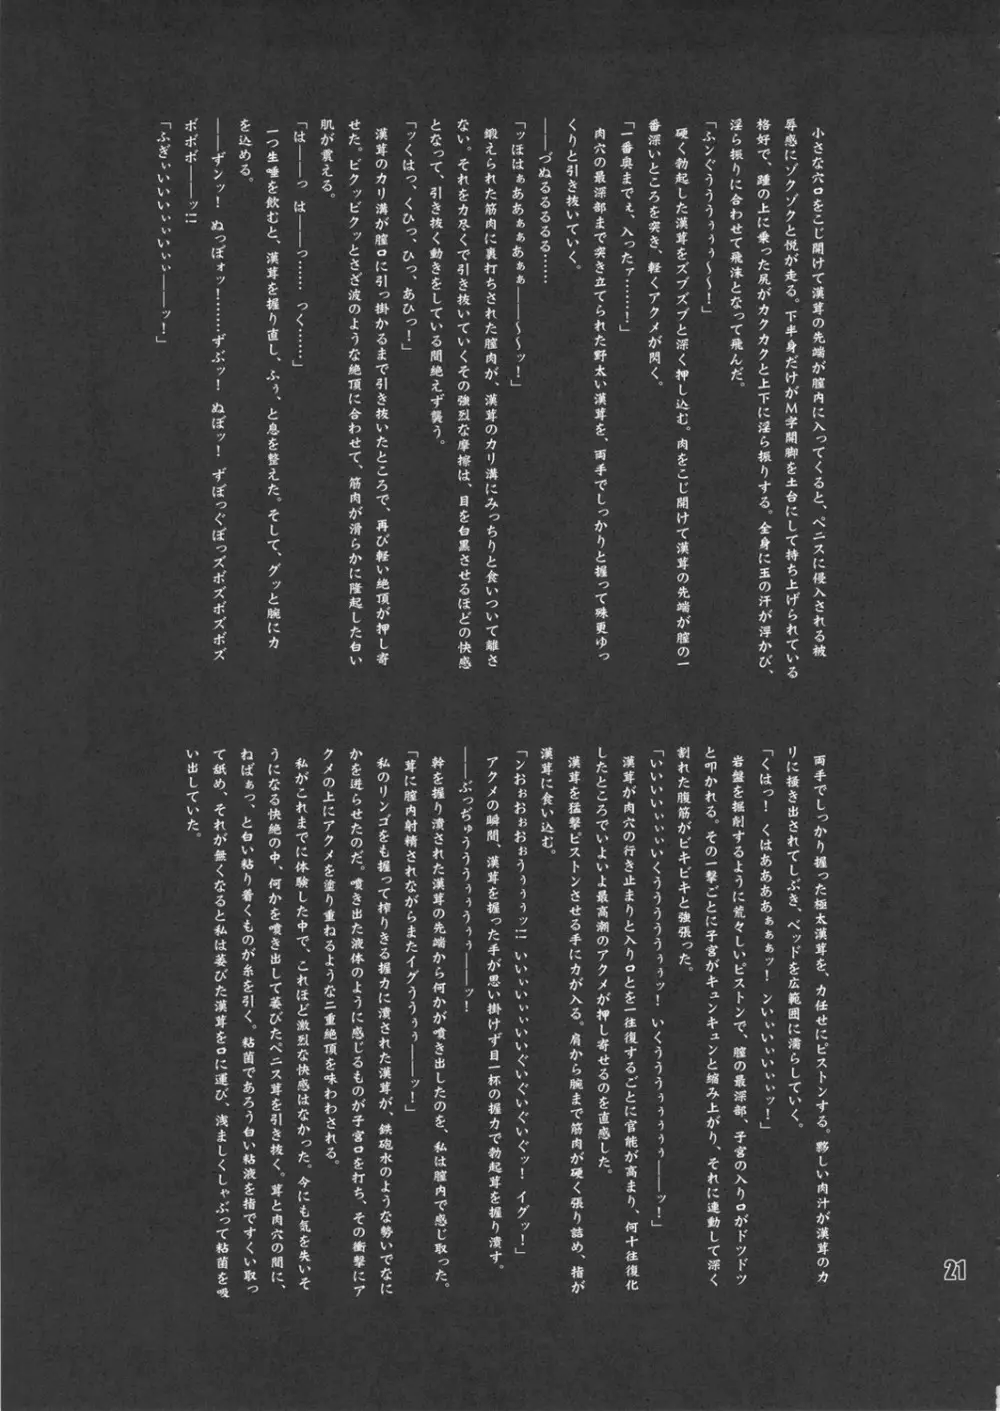 小さな穴口をこじ開けて漢茸の先端が膣内に入ってくると、ペニスに侵入される被
辱感にゾクゾクと悦が走る。下半身だけがM字開脚を土台にして持ち上げられている
格好で、踵の上に乗った尻がカクカクと上下に淫ら振りする。全身に玉の汗が浮かび、
淫ら振りに合わせて飛沫となって飛んだ。
「ふンぐぅううぅぅ～～！」
硬く勃起した漢茸をズブズブと深く押し込む。肉をこじ開けて漢茸の先端が膣の一
番深いところを突き、軽くアクメが閃く。
「一番奥までぇ、入ったァ……！」
肉穴の最深部まで突き立てられた野太い漢茸を、両手でしっかりと握って殊更ゆっ
くりと引き抜いていく。
――づぬるるるる……
「ッほはぁああぁぁあぁぁ――～～ッ！」
鍛えられた筋肉に裏打ちされた膣肉が、漢茸のカリ溝にみっちりと食いついて離さ
ない。それを力尽くで引き抜いていくその強烈な摩擦は、目を白黒させるほどの快感
となって、引き抜く動きをしている間絶えず襲う。
「ッくはっ、くひっ、ひっ、あひっ！」
漢茸のカリ溝が膣口に引っ掛かるまで引き抜いたところで、再び軽い絶頂が押し寄
せた。ビクッビクッとさざ波のような絶頂に合わせて、筋肉が滑らかに隆起した白い
肌が震える。
「は――っ は――っ…… っく……」
一つ生唾を飲むと、漢茸を握り直し、ふぅ、と息を整えた。そして、グッと腕に力
を込める。
――ずンッ！ ぬっぽォッ！……ずぶッ！ ぬぽッ！ ずぼっぐぼっズボズボズボズ
ボボボ――ッ!!
「ふぎぃいいいぃぃいぃぃ――ッ！」
両手でしっかり握った極太漢茸を、力任せにピストンする。夥しい肉汁が漢茸のカ
リに掻き出されてしぶき、ベッドを広範囲に濡らしていく。
「くはっ！ くはああああぁぁぁッ！ ンいぃいぃいぃぃッ！」
岩盤を掘削するように荒々しいピストンで、膣の最深部、子宮の入り口がドツドツ
と叩かれる。その一撃ごとに子宮がキュンキュンと縮み上がり、それに連動して深く
割れた腹筋がビキビキと強張った。
「いいいいぃぃぃいくうううううぅッ！ いくうううぅぅぅぅぅ――ッ！」
漢茸が肉穴の行き止まりと入り口とを一往復するごとに官能が高まり、何十往復化
したところでいよいよ最高潮のアクメが押し寄せるのを直感した。
漢茸を猛撃ピストンさせる手に力が入る。肩から腕まで筋肉が硬く張り詰め、指が
漢茸に食い込む。
「ンおぉおぉおぉぅぅぅぅッ!! いいぃいぃぃいぃいぐいぐいぐいぐッ！ イグッ！」
アクメの瞬間、漢茸を握った手が思い掛けず目一杯の握力で勃起茸を握り潰す。
――ぶっぢゅううううぅぅうぅぅ――ッ！
幹を握り潰された漢茸の先端から何かが噴き出したのを、私は膣内で感じ取った。
「茸に膣内射精されながらまたイグううぅぅ――ッ！」
私のリンゴをも握って搾りきる握力に潰された漢茸が、鉄砲水のような勢いでなに
かを迸らせたのだ。噴き出た液体のように感じるものが子宮口を打ち、その衝撃にア
クメの上にアクメを塗り重ねるような二重絶頂を味わわされる。
私がこれまでに体験した中で、これほど激烈な快感はなかった。今にも気を失いそ
うになる快絶の中、何かを噴き出して萎びたペニス茸を引き抜く。茸と肉穴の間に、
ねばぁっ、と白い粘り着くものが糸を引く。粘菌であろう白い粘液を指ですくい取っ
て舐め、それが無くなると私は萎びた漢茸を口に運び、浅ましくしゃぶって粘菌を吸
い出していた。
21